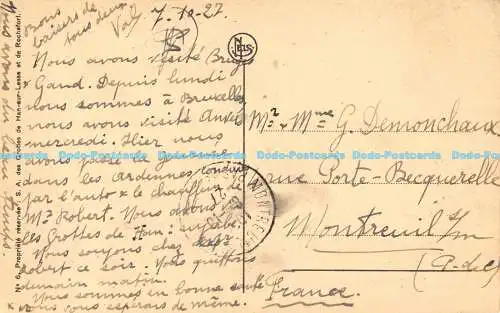 7-10-27
Bons
baisers de
tous deux
Nous avons visité Bruges
x Gand. Depuis lundi
nous sommes à Bruxelles,
nous avons visité Anvers
mercredi. Hier nous
avons
dans les Ardennes conduits
par l'auto x le chauffeur de
Mr Robert. Nous avons vu
les Grottes de Han: superbe.
Nous soupons chez
Robert ce soir. Nous quittons
demain matin.
Nous sommes en bonne santé
x vous espérons de même.
Nous avons du beau temps.
No 6. Propriété réservée S. A. des Grottes de Han-sur-Lesse et de Rochefort.
NELS
Mr x Mme G. Demonchaux
rue Porte-Becquerelle
Montreuil s/m
(P-d-C)
France.
MONTREUIL
Dodo-Postcards Dodo-Postcards Dodo-Postcards Dodo-Postcards